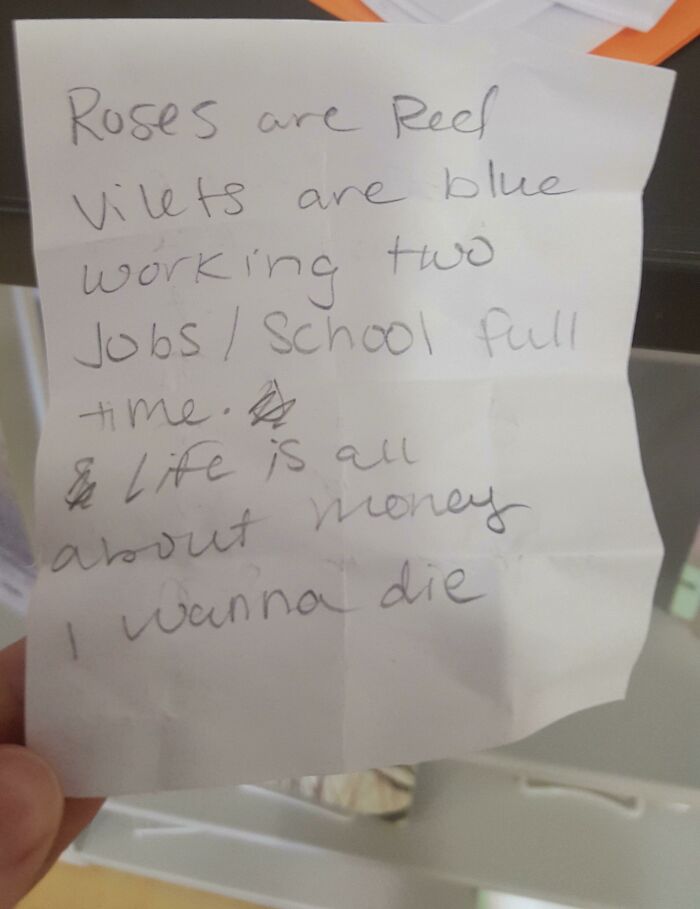 Roses are Red
Vilets are blue
working two
Jobs/School full
time.
Life is all
about money
I wanna die